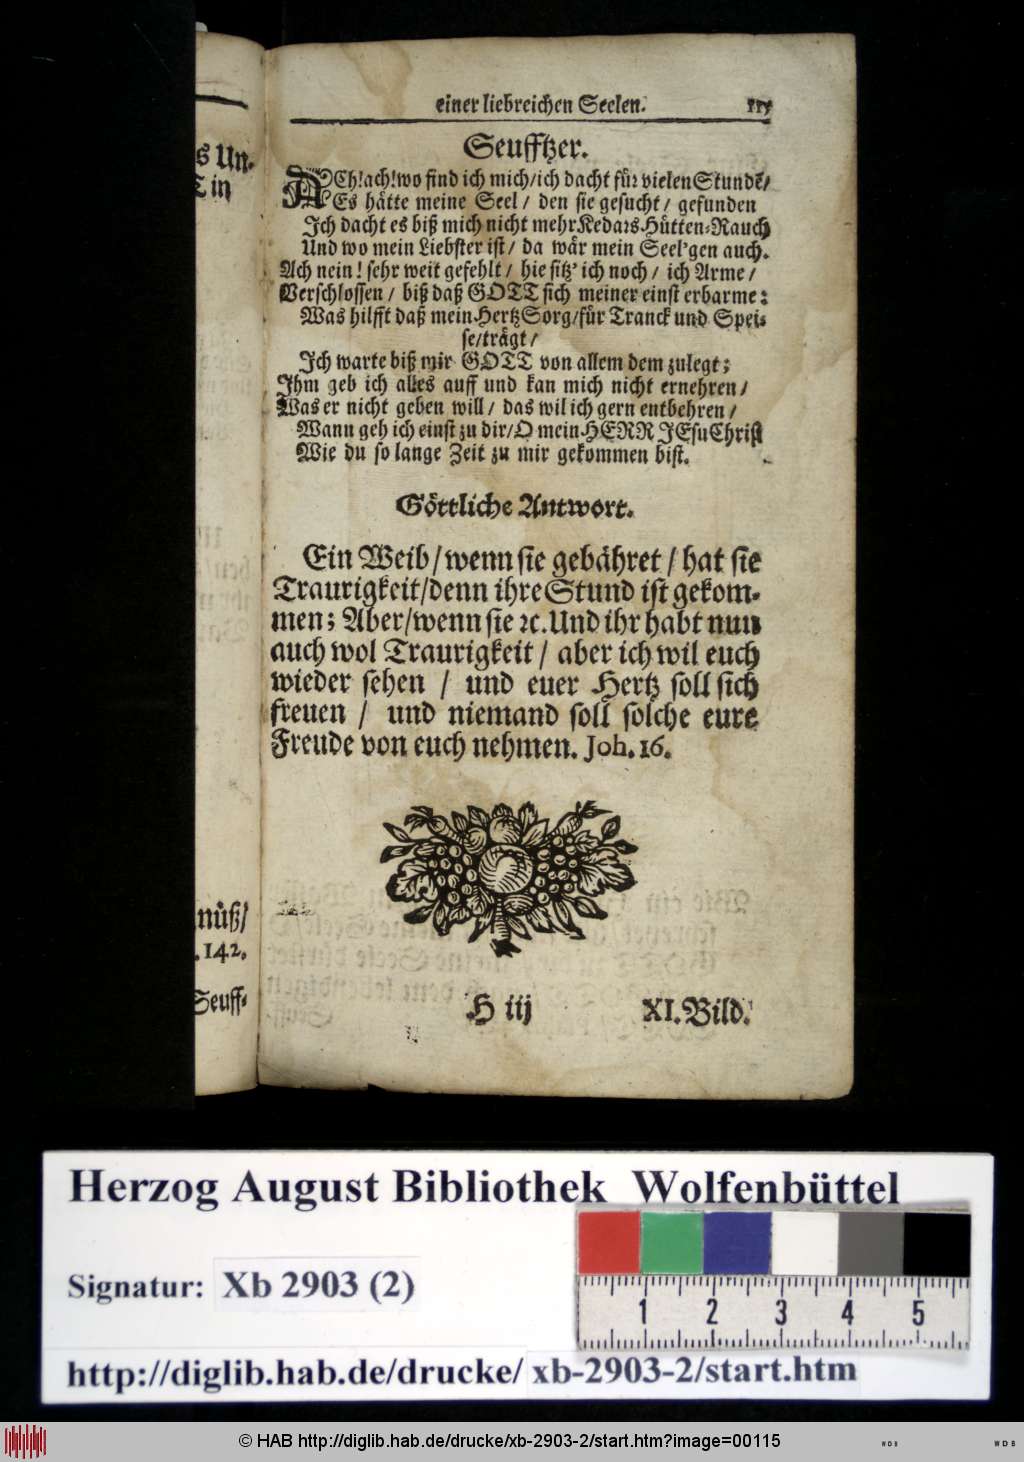 s Un-
T in
nüß/
. 142.
Seuff-
einer liebreichen Seelen. 115
Seufftzer.
ACh! ach! wo find ich mich/ ich dacht für vielen Stunde/
Es hätte meine Seel / den sie gesucht / gefunden
Ich dacht es biß mich nicht mehr Kedars Hütten-Rauch
Und wo mein Liebster ist / da wär mein Seel'gen auch.
Ach nein! sehr weit gefehlt / hie sitz' ich noch / ich Arme /
Verschlossen / biß daß GOTT sich meiner einst erbarme:
Was hilfft daß mein Hertz Sorg/ für Tranck und Spei-
se/ trägt /
Ich warte biß mir GOTT von allem dem zulegt;
Ihm geb ich alles auff und kan mich nicht ernehren /
Was er nicht geben will / das wil ich gern entbehren /
Wann geh ich einst zu dir/ O mein HERR JEsu Christ
Wie du so lange Zeit zu mir gekommen bist.
Göttliche Antwort.
Ein Weib / wenn sie gebähret / hat sie
Traurigkeit/ denn ihre Stund ist gekom-
men; Aber/ wenn sie ꝛc. Und ihr habt nun
auch wol Traurigkeit / aber ich wil euch
wieder sehen / und euer Hertz soll sich
freuen / und niemand soll solche eure
Freude von euch nehmen. Joh. 16.
H iij XI. Bild.
Herzog August Bibliothek Wolfenbüttel
Signatur: Xb 2903 (2)
1 2 3 4 5
http://diglib.hab.de/drucke/ xb-2903-2/start.htm
© HAB http://diglib.hab.de/drucke/xb-2903-2/start.htm?image=00115
WDB WDB